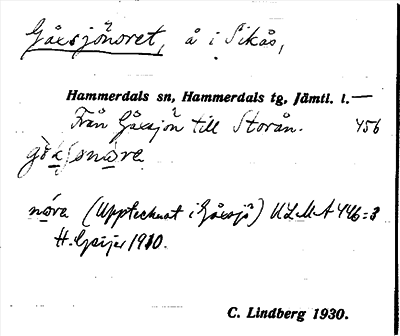 Gåxsjönoret, å i Sikås,
Hammerdals sn, Hammerdals tg, Jämtl. l. —
Från Gåxsjön till Storån. 456
nóre (Upptecknat i Gåxsjö) ULMA 446:3
H. Geijer 1910.
C. Lindberg 1930.